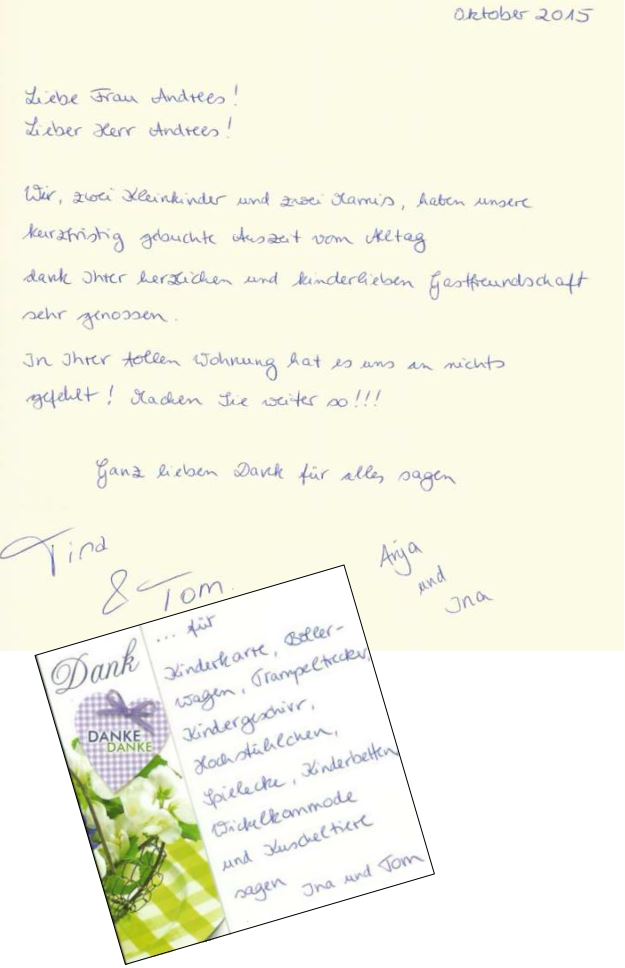 Oktober 2015
Liebe Frau Andrees!
Lieber Herr Andrees!
Wir, zwei Kleinkinder und zwei Mamis, haben unsere
kurzfristig gebuchte Auszeit vom Alltag
dank Ihrer herzlichen und kinderlieben Gastfreundschaft
sehr genossen.
In Ihrer tollen Wohnung hat es uns an nichts
gefehlt! Machen Sie weiter so!!!
Ganz lieben Dank für alles sagen
Tina
& Tom
Anja
und
Ina
Dank
DANKE
DANKE
... für
Kinderkarre, Boller-
wagen, Trampeltrecker,
Kindergeschirr,
Hochstühlchen,
Spielecke, Kinderbetten
Wickelkommode
und Kuscheltiere
sagen Ina und Tom